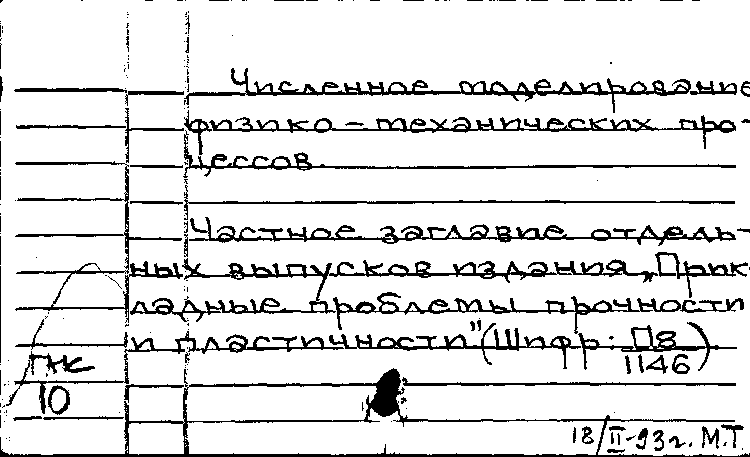 Численное моделирование
физико-механических про-
цессов.
Частное заглавие отдель-
ных выпусков издания „Прик-
ладные проблемы прочности
и пластичности" (Шифр: П8/1146).
ГНК
10
18/II-93г. М.Т